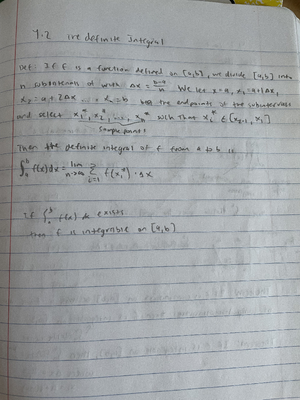 4.2 the definite Integral
def If f is a function defined on [a,b], we divide [a,b] into
n subintervals of width Δx = b-a/n. We let x=a, x₁=a+Δx,
x₂=a+2Δx ... xₙ=b be the endpoints of the subintervals
and select x₁*, x₂*, ..., xₙ* such that xᵢ* ∈ [xᵢ₋₁, xᵢ]
sample points
Then the definite integral of f from a to b is
∫ₐᵇ f(x)dx = lim n→∞ Σ i=1 n f(xᵢ*)·Δx
if ∫ₐᵇ f(x) dx exists
then f is integrable on [a,b]